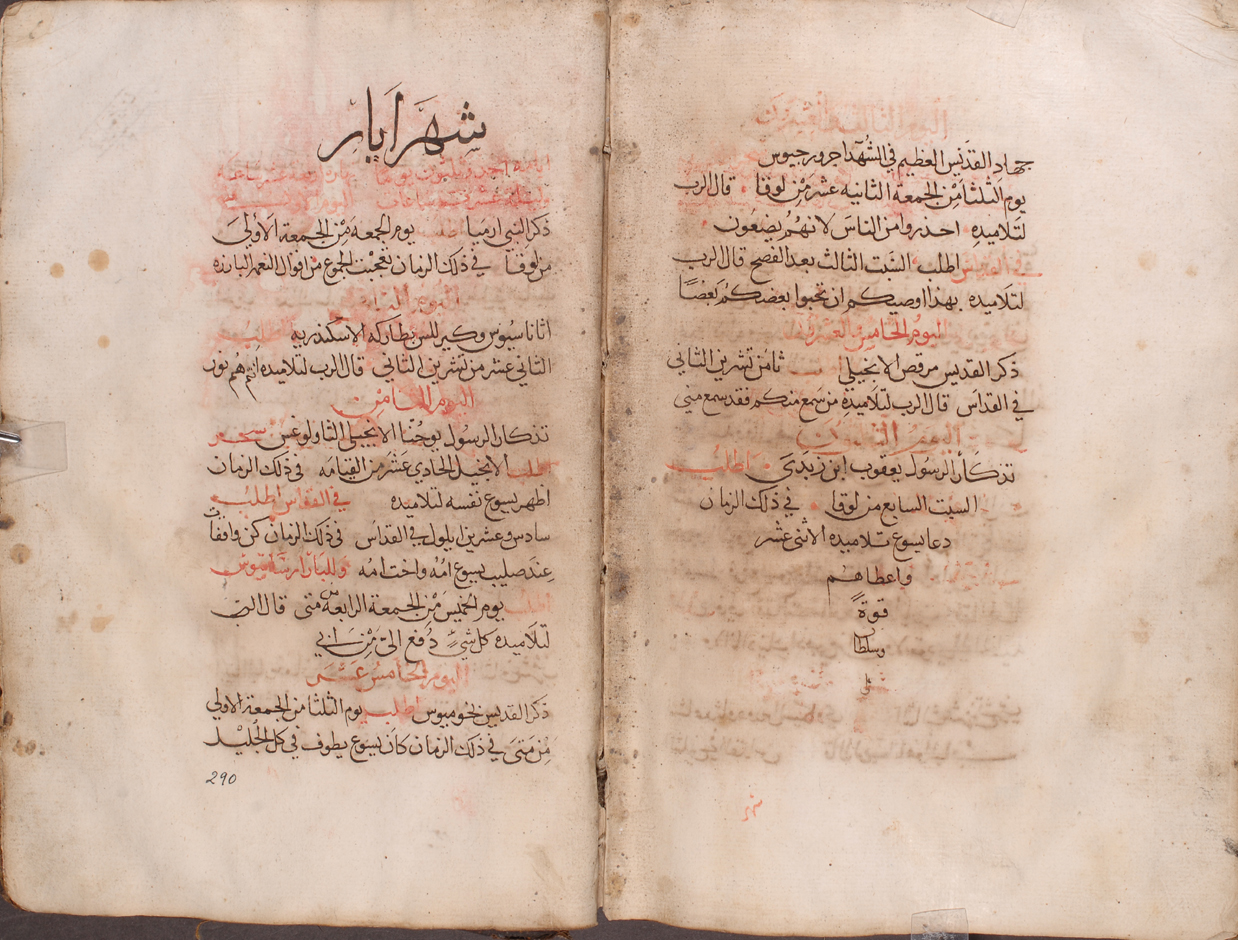 اليوم الثالث والعشرين
جهاد القديس العظيم في الشهدا جرورجيوس
يوم الثلثا من الجمعة الثانيه عشر من لوقا قال الرب
لتلاميذه احدروا من الناس لانهم يضعون
اطلب السبت الثالث بعد الفصح قال الرب
لتلاميده بهدا اوصيكم ان تحبوا بعضكم بعضا
اليوم الخامس والعشرين
ذكر القديس مرقص الانجيلي ثامن تشرين الثاني
في القداس قال الرب لتلاميذه من سمع منكم فقد سمع مني
اليوم الثلثون
تدكار الرسول يعقوب ابن زبدي اطلب
السبت السابع من لوقا في ذلك الزمان
دعا يسوع تلاميده الاثني عشر
واعطاهم
قوة
وسلطا
شهر ايار
ذكر النبي ارميا اطلب يوم الجمعة من الجمعة الاولي
من لوقا في ذلك الزمان تعجبت الجموع من اقوال النعمه البارزه
اليوم الثاني
اثاناسيوس وكيرللس بطاركه الاسكندريه
الثاني عشر من تشرين الثاني قال الرب لتلاميده انتم هم نور
اليوم الثامن
تدكار الرسول يوحنا الانجيلي الثاولوغس سحر
اطلب الانجيل الحادي عشر من القيامه في ذلك الزمان
اظهر يسوع نفسه لتلاميده في القداس اطلب
سادس وعشرين ايلول في القداس في ذلك الزمان كن واقفات
عند صليب يسوع امه واخت امه وللبار ارسانيوس
اطلب يوم الخميس من الجمعة الرابعة من متى قال الرب
لتلاميده كل شي دفع الي من ابي
اليوم الخامس عشر
ذكر القديس بخوميوس اطلب يوم الثلثا من الجمعة الاولي
من متى في ذلك الزمان كان يسوع يطوف في كل الجليل
290